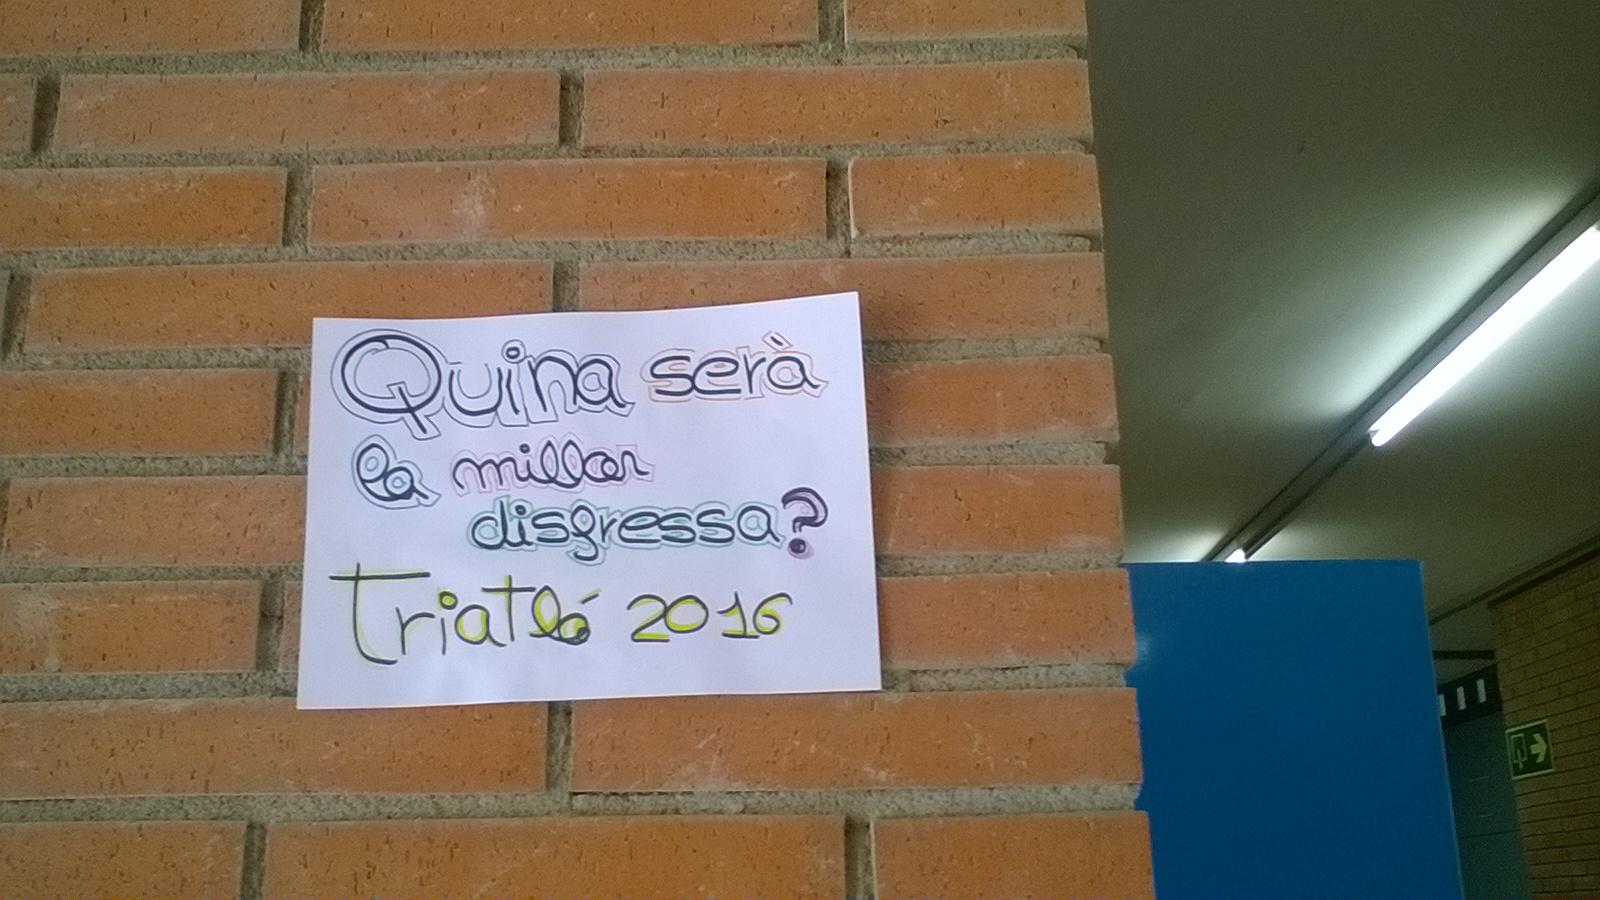 Quina serà
la millor
disgressa?
Triatló 2016